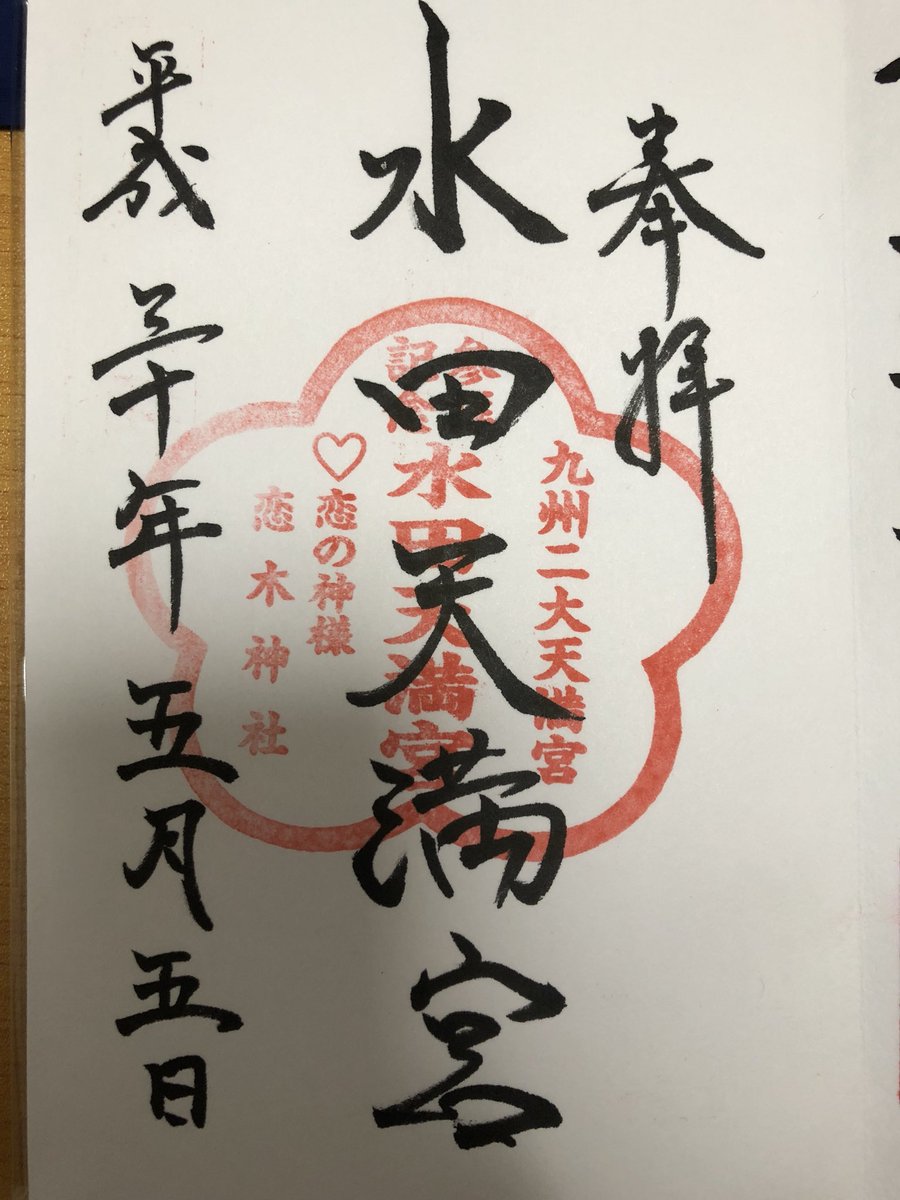 奉拝
水田天満宮
平成三十年五月五日
九州二大天満宮
参拝記念
水田天満宮
♡恋の神様
恋木神社